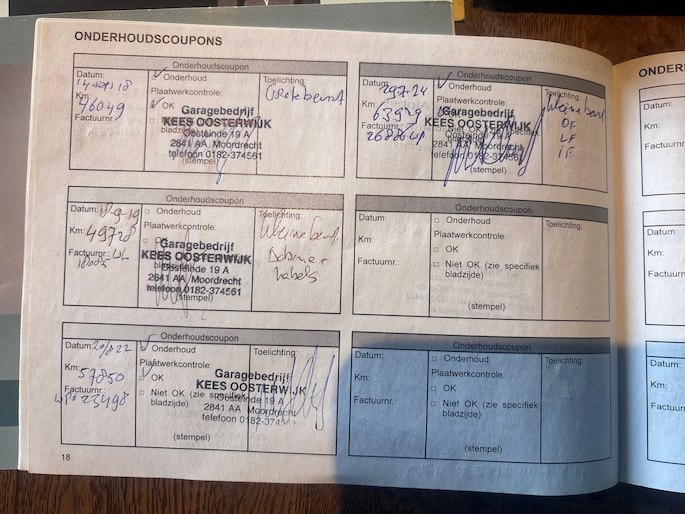 ONDERHOUDSCOUPONS
Onderhoudscoupon
Datum:
14 sept 18
Km:
46049
Factuurnr.:
Onderhoud
Plaatwerkcontrole:
OK
bladzijde)
(stempel)
Toelichting:
Grote beurt
Garagebedrijf
KEES OOSTERWIJK
Oosteinde 19 A
2841 AA Moordrecht
telefoon 0182-374561
Onderhoudscoupon
Datum:
Km:
49728
Factuurnr.:
Onderhoud
Plaatwerkcontrole:
OK
bladzijde)
(stempel)
Toelichting:
Kleine beurt
kabels
Garagebedrijf
KEES OOSTERWIJK
Oosteinde 19 A
2841 AA Moordrecht
telefoon 0182-374561
Onderhoudscoupon
Datum:
Km:
57850
Factuurnr.:
23498
Onderhoud
Plaatwerkcontrole:
OK
Niet OK (zie specifiek
bladzijde)
(stempel)
Toelichting:
Garagebedrijf
KEES OOSTERWIJK
Oosteinde 19 A
2841 AA Moordrecht
telefoon 0182-374
18
Onderhoudscoupon
Datum:
29-7-24
Km:
63979
Factuurnr.:
Onderhoud
Plaatwerkcontrole:
Niet OK (zie specifiek
(stempel)
Toelichting:
Kleine beurt
OF
LF
iF
Garagebedrijf
KEES OOSTERWIJK
Oosteinde 19 A
2841 AA Moordrecht
telefoon 0182-374561
Onderhoudscoupon
Datum:
Km:
Factuurnr.:
Onderhoud
Plaatwerkcontrole:
OK
Niet OK (zie specifiek
bladzijde)
(stempel)
Toelichting:
Onderhoudscoupon
Datum:
Km:
Factuurnr.:
Onderhoud
Plaatwerkcontrole:
OK
Niet OK (zie specifiek
bladzijde)
(stempel)
Toelichting:
ONDER
Datum:
Km:
Factuurnr
Datum:
Km:
Factuurnr
Datum:
Km:
Factuurn